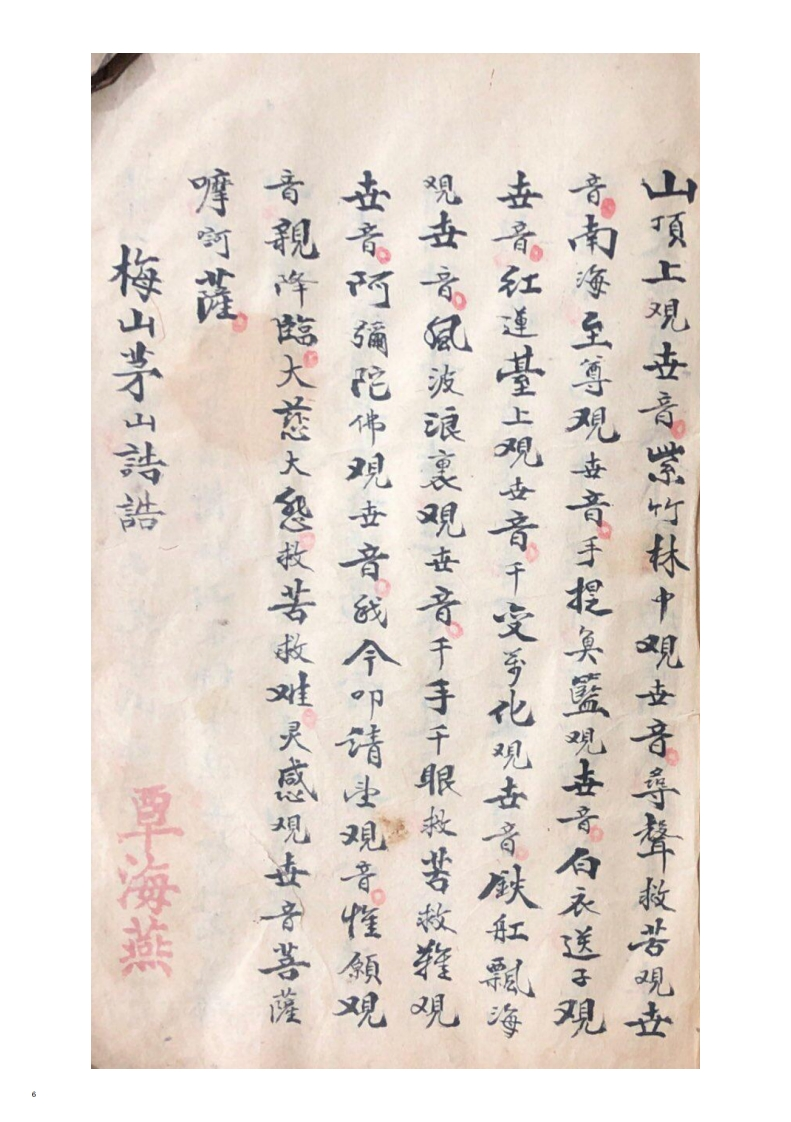 山頂上观世音紫竹林中观世音尋聲救苦观世
音南海至尊观世音手提魚籃观世音白衣送子观
世音红連臺上观世音千变万化观世音鉄舡飄海
观世音風波浪裏观世音千手千眼救苦救難观
世音阿彌陀佛观世音我今叩請圣观音惟願观
音親降臨大慈大悲救苦救难灵感观世音菩薩
嚤訶薩
梅山茅山誥誥
覃海燕
6